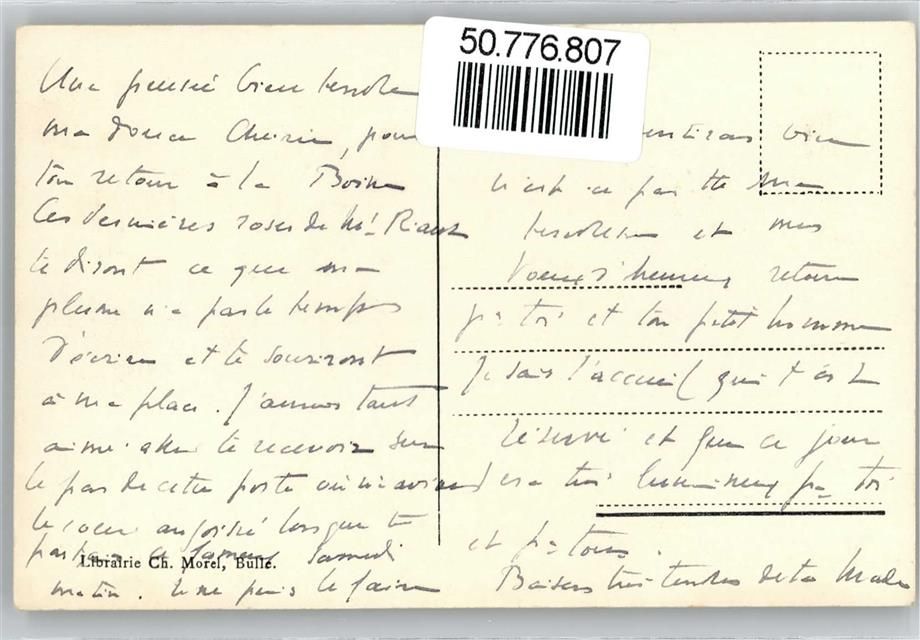 50.776.807
Une pensée bien tendre
ma douce Chérie, pour
ton retour à la
Ces dernières roses de
te diront ce que ma
plume n'a pas le temps
d'écrire et te souriront
à ma place. J'aurais tant
aimé aller te recevoir sur
le pas de cette porte où
le coeur angoissé lorsque tu
Samedi
matin. le faire
Librairie Ch. Morel, Bulle.
bien
n'est-ce pas ma
tendresse et mes
voeux d'heureux retour
pr toi et ton petit homme
Je sais l'accueil qui t'est
réservé et que ce jour
sera très lumineux pr toi
et pr tous.
Baisers très tendres de ta